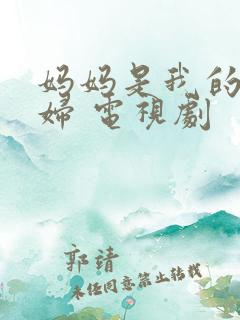 妈妈是我的
婦 電視劇
郭靖
未任同意禁止转载